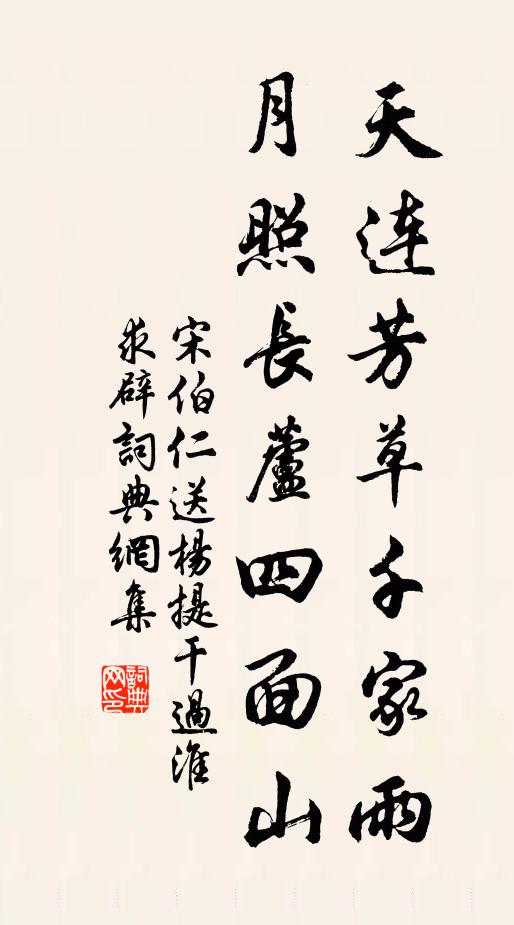 天連芳草千家雨
月照長蘆四面山
宋伯仁送楊提干過淮
求辟詞典網集
詞典
网印